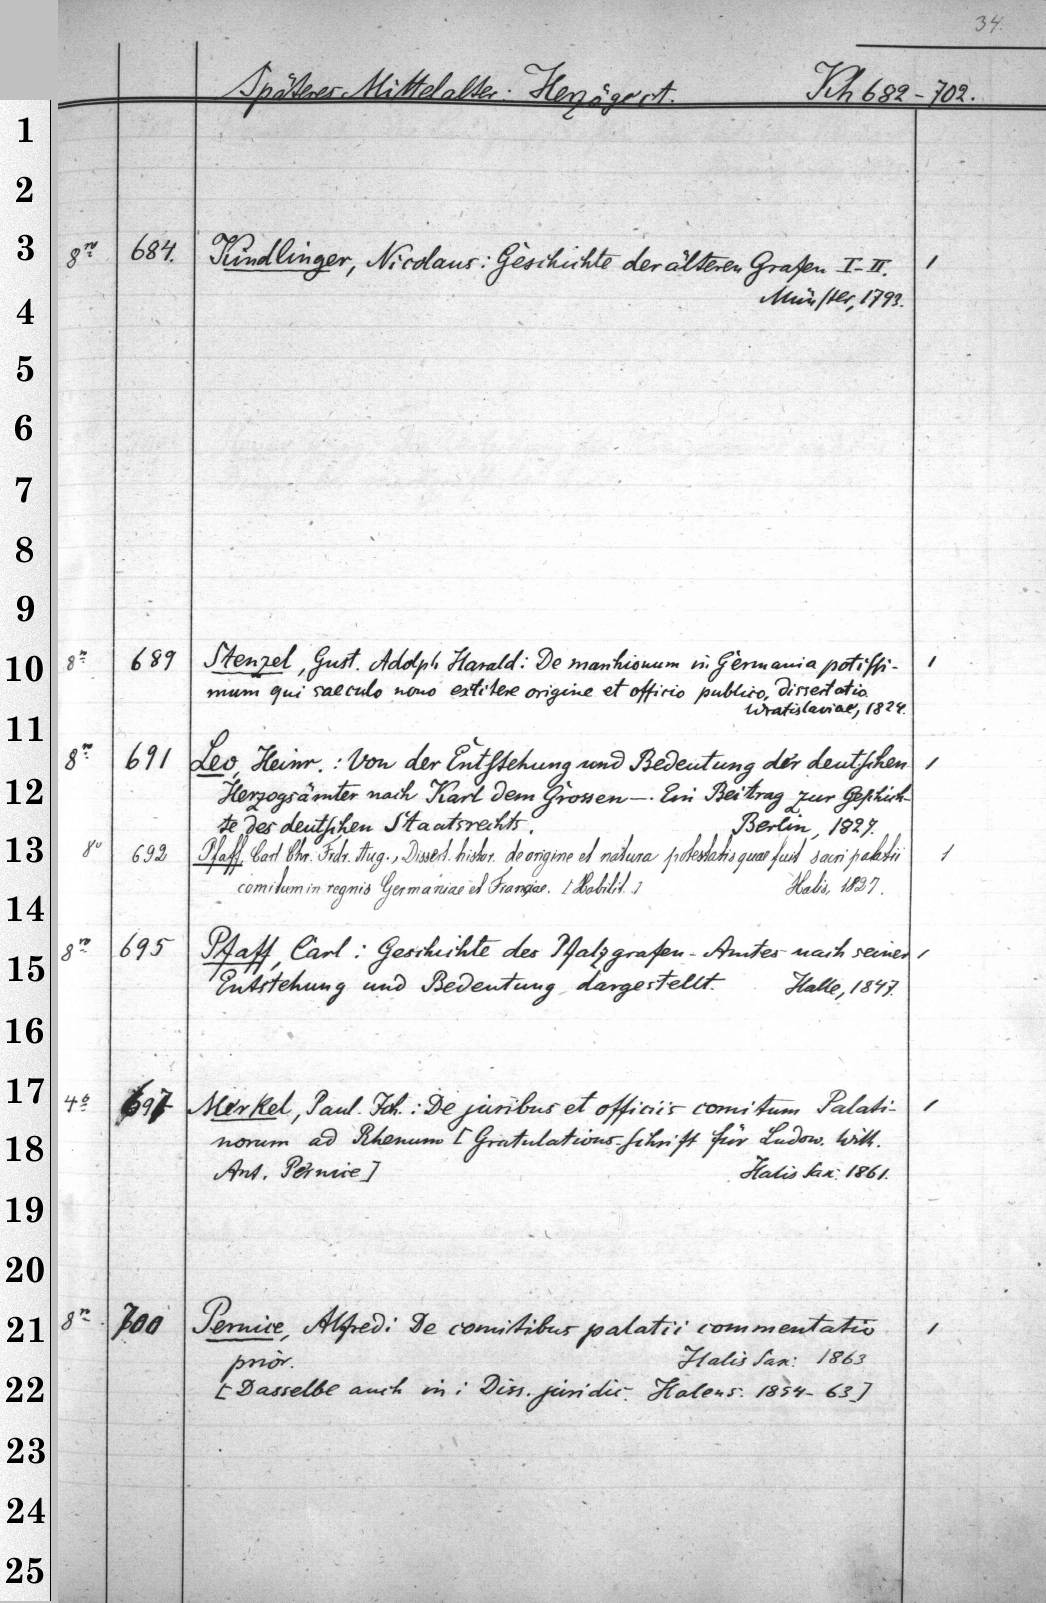 34.
Späteres Mittelalter: Herzöge ct. Kh 682-702.
1
2
3 8ro 684. Kindlinger, Nicolaus: Geschichte der älteren Grafen I-II. 1
4 Münster, 1793.
5
6
7
8
9
10 8ro 689 Stenzel, Gust. Adolph Harald: De marchionum in Germania potissi- 1
mum qui saeculo nono extitere origine et officio publico, dissertatio
Wratislaviae, 1824.
11
8ro 691 Leo, Heinr.: Von der Entstehung und Bedeutung der deutschen 1
12 Herzogsämter nach Karl dem Grossen—. Ein Beitrag zur Geschich-
te des deutschen Staatsrechts. Berlin, 1827.
13 8o 692 Pfaff, Carl Chr. Frdr. Aug., Dissert. histor. de origine et natura potestatis quae fuit sacri palatii 1
comitum in regnis Germaniae et Franciae. [Habilit.] Halis, 1827.
14
8ro 695 Pfaff, Carl: Geschichte des Pfalzgrafen-Amtes nach seiner 1
15 Entstehung und Bedeutung dargestellt. Halle, 1847.
16
17 4o 697 Merkel, Paul. Joh.: De juribus et officiis comitum Palati- 1
18 norum ad Rhenum [Gratulations-schrift für Ludow. Wilh.
Ant. Pernice] Halis Sax: 1861.
19
20
21 8ro. 700 Pernice, Alfred: De comitibus palatii commentatio 1
prior. Halis Sax: 1863
22 [Dasselbe auch in: Diss. juridic. Halens. 1854-63]
23
24
25